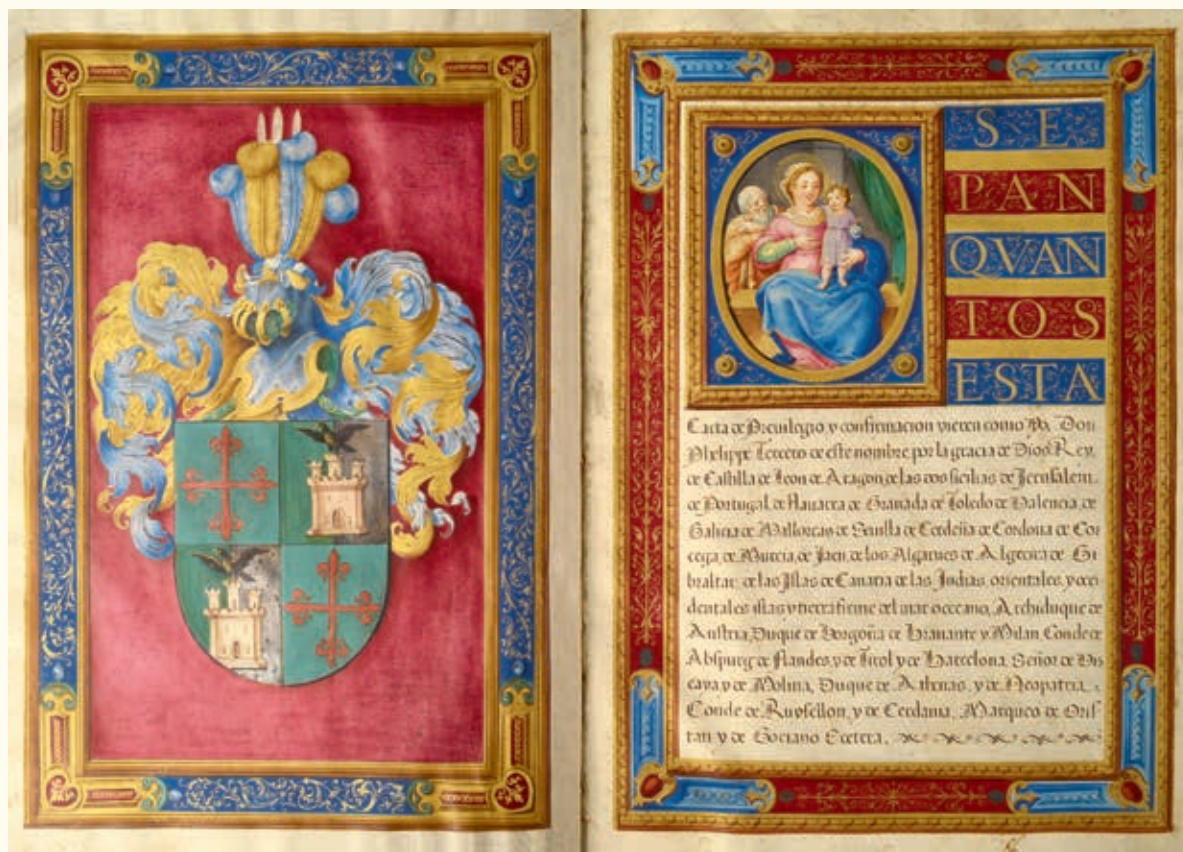 SE
PAN
QVAN
TOS
ESTA
Carta de Preuilegio y confirmacion vieren como Yo, Don
Phelippe Tercero de este nombre por la gracia de Dios Rey,
de Castilla de Leon de Aragon de las dos sicilias de Jerusalem.
de Portugal, de Nauarra de Granada de Toledo de Valencia de
Galicia de Mallorcas de Seuilla de Cerdeña de Cordoua de Cor
cega, de Murcia, de Jaen de los Algarues de Algecira de Gi
braltar de las Islas de Canaria de las Indias, orientales, y occi
dentales islas y tierra firme del mar occeano, Archiduque de
Austria, Duque de Borgoña de Brauante y Milan, Conde de
Abspurg de Flandes, y de Tirol y de Barcelona, Señor de Vis
caya y de Molina, Duque de Athenas, y de Neopatria,
Conde de Ruysellon, y de Cerdania, Marques de Oris
tan y de Gociano Ecetera,